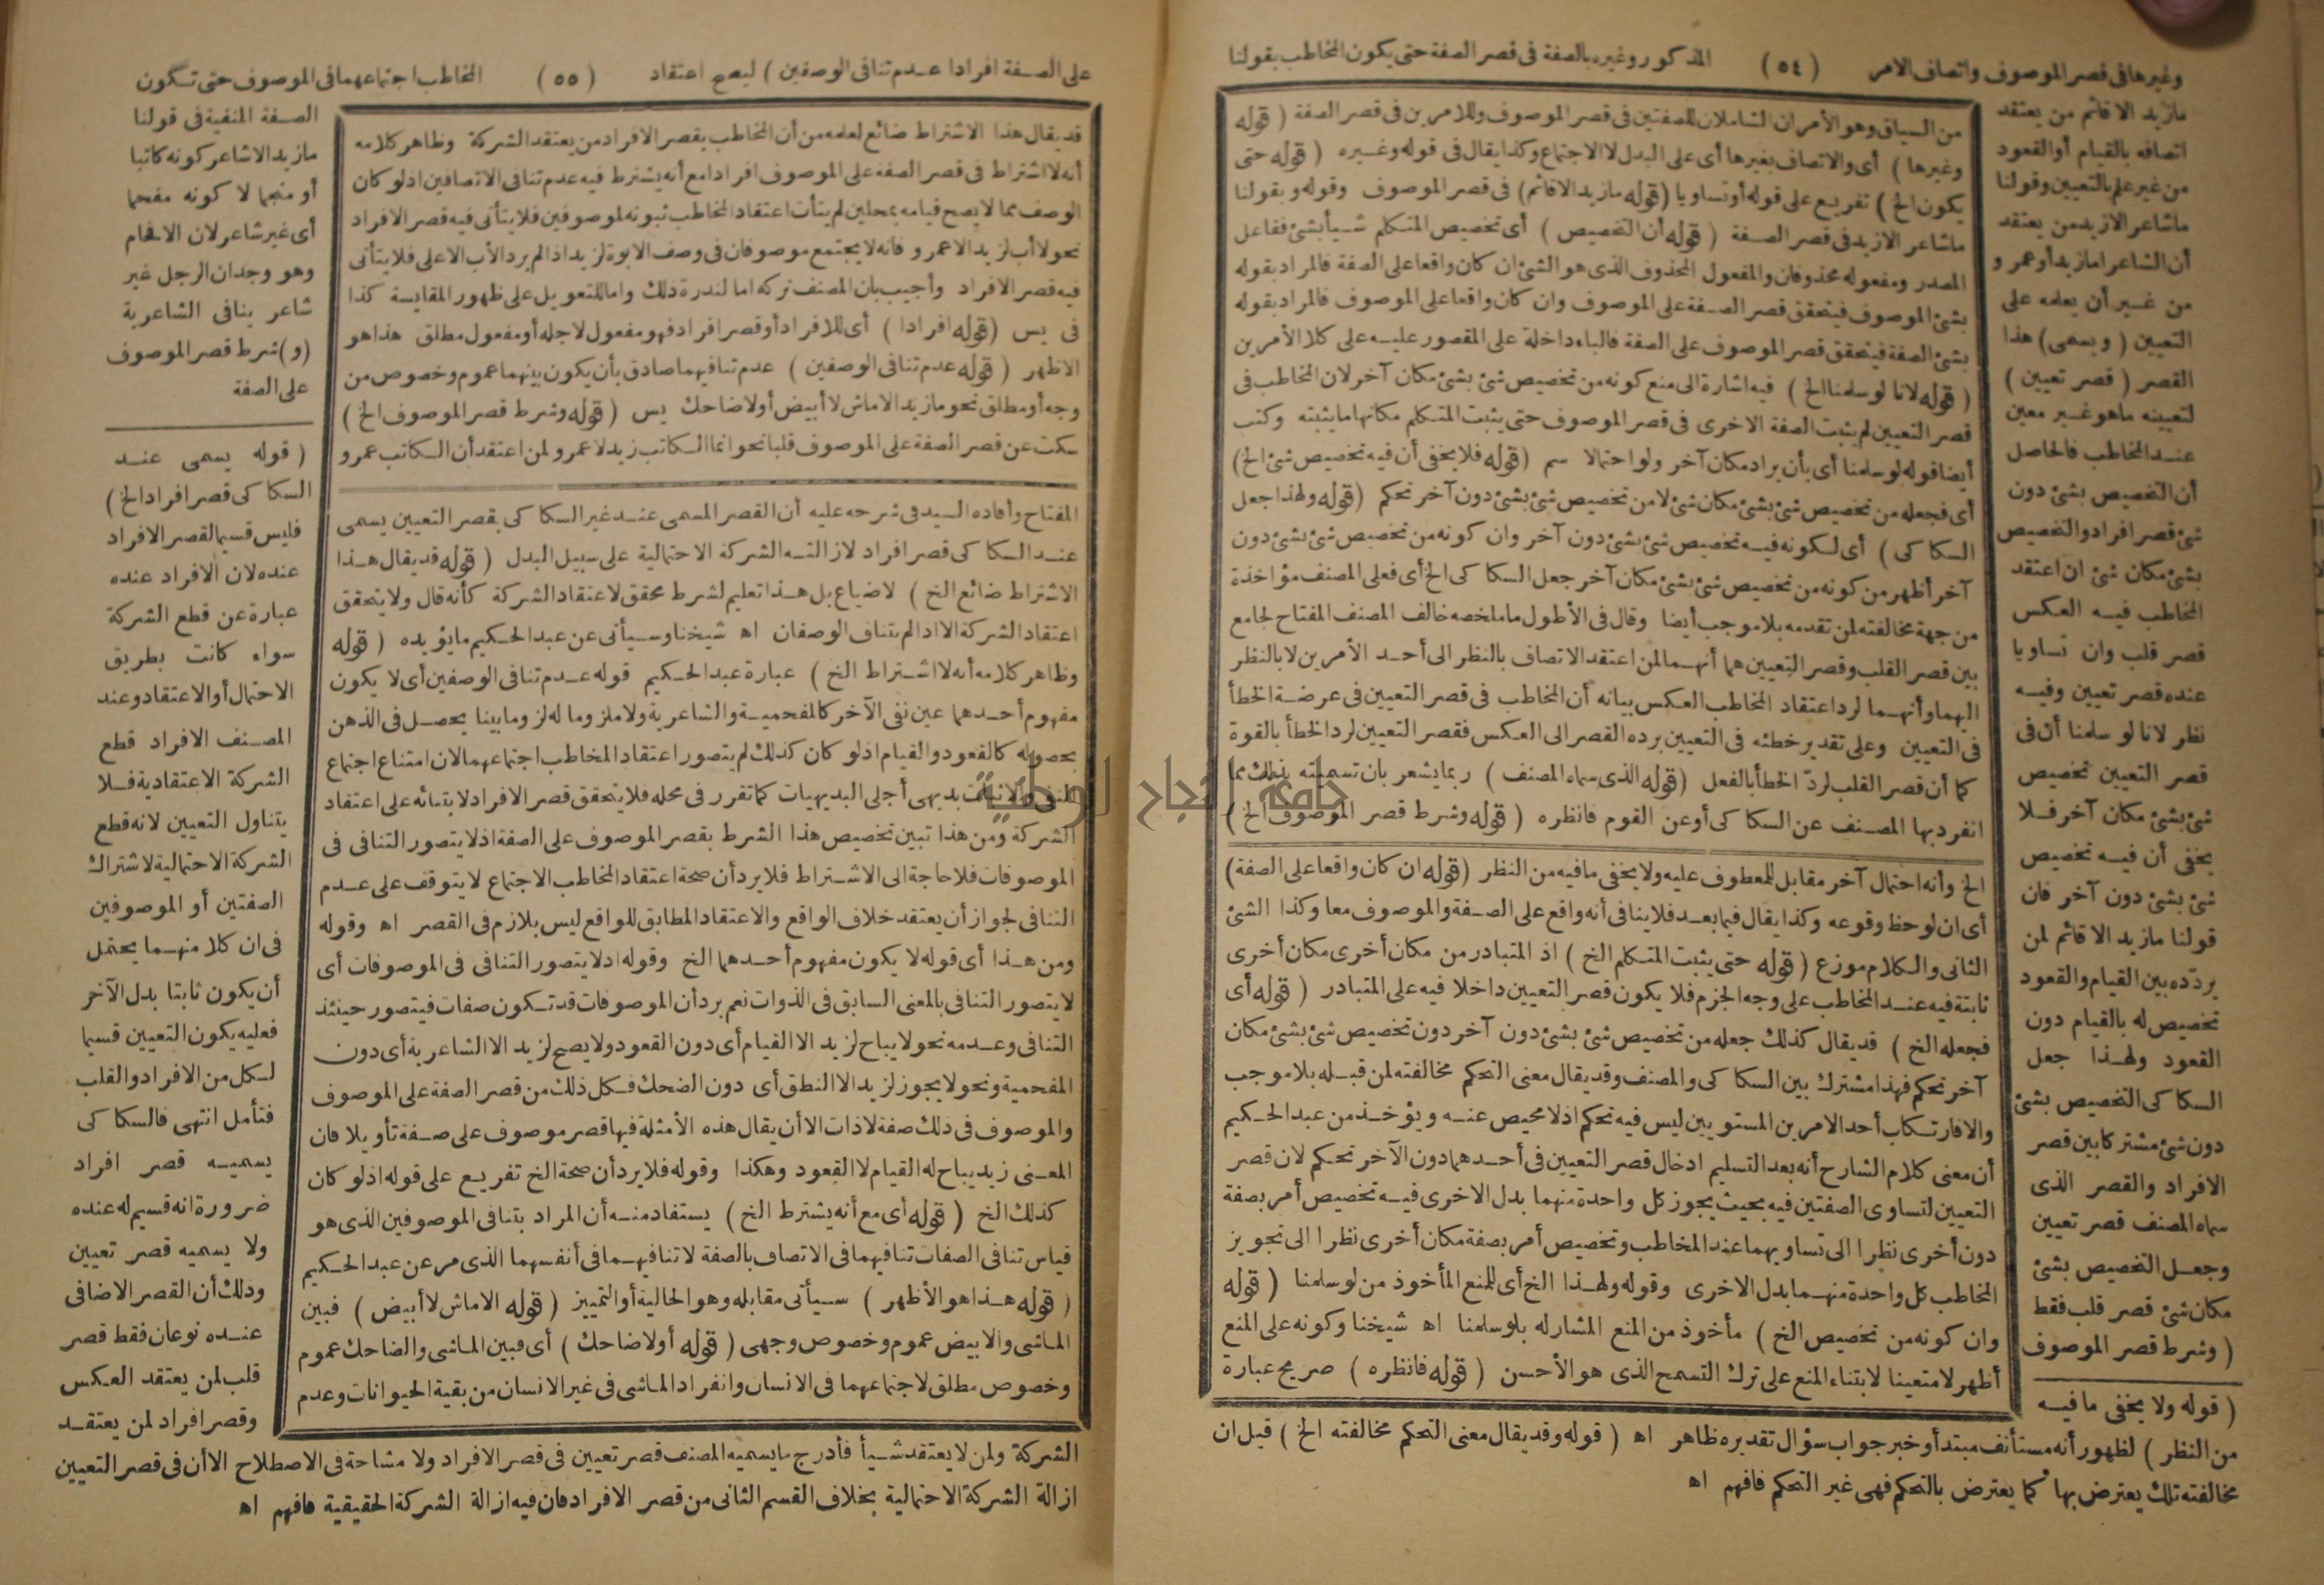 وغيرها في قصر الموصوف واتصاف الامر (٥٤) المذكور وغيره بالصفة في قصر الصفة حتى يكون المخاطب بقولنا
مازيد الا قائم من يعتقد
اتصافه بالقيام أو القعود
من غير علم بالتعيين وقولنا
ماشاعر الا زيد من يعتقد
أن الشاعر اما زيد أو عمرو
من غير أن يعلمه على
التعيين (ويسمى) هذا
القصر (قصر تعيين)
لتعيينه ما هو غير معين
عند المخاطب فالحاصل
أن التخصيص بشئ دون
شئ قصر افراد والتخصيص
بشئ مكان شئ ان اعتقد
المخاطب فيه العكس
قصر قلب وان تساويا
عنده قصر تعيين وفيه
نظر لانا لو سلمنا أن في
قصر التعيين تخصيص
شئ بشئ مكان آخر فلا
يخفى أن فيه تخصيص
شئ بشئ دون آخر فان
قولنا مازيد الا قائم لمن
يردده بين القيام والقعود
تخصيص له بالقيام دون
القعود ولهذا جعل
السكاكى التخصيص بشئ
دون شئ مشتركا بين قصر
الافراد والقصر الذى
سماه المصنف قصر تعيين
وجعل التخصيص بشئ
مكان شئ قصر قلب فقط
(وشرط قصر الموصوف
من السياق وهو الأمران الشاملان للصفتين في قصر الموصوف وللامرين في قصر الصفة (قوله
وغيرها) أى والاتصاف بغيرها أى على البدل لا الاجتماع وكذا يقال في قوله وغيره (قوله حتى
يكون الخ) تفريع على قوله أو تساويا (قوله مازيد الا قائم) في قصر الموصوف وقوله وبقولنا
ماشاعر الا زيد في قصر الصفة (قوله أن التخصيص) أى تخصيص المتكلم شيأ بشئ ففاعل
المصدر ومفعوله محذوفان والمفعول المحذوف الذى هو الشئ ان كان واقعا على الصفة فالمراد بقوله
بشئ الموصوف فيتحقق قصر الصفة على الموصوف وان كان واقعا على الموصوف فالمراد بقوله
بشئ الصفة فيتحقق قصر الموصوف على الصفة فالباء داخلة على المقصور عليه على كلا الأمرين
(قوله لانا لو سلمنا الخ) فيه اشارة الى منع كونه من تخصيص شئ بشئ مكان آخر لان المخاطب في
قصر التعيين لم يثبت الصفة الاخرى في قصر الموصوف حتى يثبت المتكلم مكانها ما يثبته وكتب
أيضا قوله لو سلمنا أى بأن يراد مكان آخر ولو احتمالا سم (قوله فلا يخفى أن فيه تخصيص شئ الخ)
أى فجعله من تخصيص شئ بشئ مكان شئ لا من تخصيص شئ بشئ دون آخر تحكم (قوله ولهذا جعل
السكاكى) أى لكونه فيه تخصيص شئ بشئ دون آخر وان كونه من تخصيص شئ بشئ دون
آخر أظهر من كونه من تخصيص شئ بشئ مكان آخر جعل السكاكى الخ أى فعلى المصنف مؤاخذة
من جهة مخالفته لمن تقدمه بلا موجب أيضا وقال في الأطول ما ملخصه خالف المصنف المفتاح لجامع
بين قصر القلب وقصر التعيين هما أنهما لمن اعتقد الاتصاف بالنظر الى أحد الأمرين لا بالنظر
اليهما وأنهما لرد اعتقاد المخاطب العكس بيانه أن المخاطب في قصر التعيين في عرضة الخطأ
في التعيين وعلى تقدير خطئه في التعيين يرده القصر الى العكس فقصر التعيين لرد الخطأ بالقوة
كما أن قصر القلب لرد الخطأ بالفعل (قوله الذى سماه المصنف) ربما يشعر بان تسميته بذلك مما
انفرد بها المصنف عن السكاكى أو عن القوم فانظره (قوله وشرط قصر الموصوف الخ)
الخ وأنه احتمال آخر مقابل للمعطوف عليه ولا يخفى ما فيه من النظر (قوله ان كان واقعا على الصفة)
أى ان لوحظ وقوعه وكذا يقال فيما بعد فلا ينافى أنه واقع على الصفة والموصوف معا وكذا الشئ
الثانى والكلام موزع (قوله حتى يثبت المتكلم الخ) اذ المتبادر من مكان أخرى مكان أخرى
ثابتة فيه عند المخاطب على وجه الجزم فلا يكون قصر التعيين داخلا فيه على المتبادر (قوله أى
فجعله الخ) قد يقال كذلك جعله من تخصيص شئ بشئ دون آخر دون تخصيص شئ بشئ مكان
آخر تحكم فهذا مشترك بين السكاكى والمصنف وقد يقال معنى التحكم مخالفته لمن قبله بلا موجب
والا فارتكاب أحد الامرين المستويين ليس فيه تحكم اذ لا محيص عنه ويؤخذ من عبد الحكيم
أن معنى كلام الشارح أنه بعد التسليم ادخال قصر التعيين في أحدهما دون الآخر تحكم لان قصر
التعيين لتساوى الصفتين فيه بحيث يجوز كل واحدة منهما بدل الاخرى فيه تخصيص أمر بصفة
دون أخرى نظرا الى تساويهما عند المخاطب وتخصيص أمر بصفة مكان أخرى نظرا الى تجويز
المخاطب كل واحدة منهما بدل الاخرى وقوله ولهذا الخ أى للمنع المأخوذ من لو سلمنا (قوله
وان كونه من تخصيص الخ) مأخوذ من المنع المشار له بلو سلمنا اه شيخنا وكونه على المنع
أظهر لا متعينا لابتناء المنع على ترك التسمح الذى هو الأحسن (قوله فانظره) صريح عبارة
(قوله ولا يخفى ما فيه
من النظر) لظهور أنه مستأنف مبتدأ وخبر جواب سؤال تقديره ظاهر اه (قوله وقد يقال معنى التحكم مخالفته الخ) قيل ان
مخالفته تلك يعترض بها كما يعترض بالتحكم فهى غير التحكم فافهم اه
على الصفة افرادا عدم تنافى الوصفين) ليصح اعتقاد (٥٥) المخاطب اجتماعهما في الموصوف حتى تكون
قد يقال هذا الاشتراط ضائع لعلمه من أن المخاطب بقصر الافراد من يعتقد الشركة وظاهر كلامه
أنه لا اشتراط في قصر الصفة على الموصوف افرادا مع أنه يشترط فيه عدم تنافى الاتصافين اذ لو كان
الوصف مما لا يصح قيامه بمحلين لم يتأت اعتقاد المخاطب ثبوته لموصوفين فلا يتأتى فيه قصر الافراد
نحو لا أب لزيد الا عمرو فانه لا يجتمع موصوفان في وصف الابوة لزيد اذا لم يرد الأب الاعلى فلا يتأتى
فيه قصر الافراد وأجيب بان المصنف تركه اما لندرة ذلك واما للتعويل على ظهور المقايسة كذا
في يس (قوله افرادا) أى للافراد أو قصر افراد فهو مفعول لاجله أو مفعول مطلق هذا هو
الاظهر (قوله عدم تنافى الوصفين) عدم تنافيهما صادق بأن يكون بينهما عموم وخصوص من
وجه أو مطلق نحو مازيد الا ماش لا أبيض أو لا ضاحك يس (قوله وشرط قصر الموصوف الخ)
سكت عن قصر الصفة على الموصوف قلبا نحو انما الكاتب زيد لا عمرو لمن اعتقد أن الكاتب عمرو
المفتاح وأفاده السيد في شرحه عليه أن القصر المسمى عند غير السكاكى بقصر التعيين يسمى
عند السكاكى قصر افراد لازالته الشركة الاحتمالية على سبيل البدل (قوله قد يقال هذا
الاشتراط ضائع الخ) لا ضياع بل هذا تعليم لشرط محقق لاعتقاد الشركة كأنه قال ولا يتحقق
اعتقاد الشركة الا اذا لم يتناف الوصفان اه شيخنا وسيأتى عن عبد الحكيم ما يؤيده (قوله
وظاهر كلامه أنه لا اشتراط الخ) عبارة عبد الحكيم قوله عدم تنافى الوصفين أى لا يكون
مفهوم أحدهما عين نفى الآخر كالمفحمية والشاعرية ولا ملزوما له لزوما بينا يحصل في الذهن
بحصوله كالقعود والقيام اذ لو كان كذلك لم يتصور اعتقاد المخاطب اجتماعهما لان امتناع اجتماع
النفى والاثبات بديهى أجلى البديهيات كما تقرر في محله فلا يتحقق قصر الافراد لابتنائه على اعتقاد
الشركة ومن هذا تبين تخصيص هذا الشرط بقصر الموصوف على الصفة اذ لا يتصور التنافى في
الموصوفات فلا حاجة الى الاشتراط فلا يرد أن صحة اعتقاد المخاطب الاجتماع لا يتوقف على عدم
التنافى لجواز أن يعتقد خلاف الواقع والاعتقاد المطابق للواقع ليس بلازم في القصر اه وقوله
ومن هذا أى قوله لا يكون مفهوم أحدهما الخ وقوله اذ لا يتصور التنافى في الموصوفات أى
لا يتصور التنافى بالمعنى السابق في الذوات نعم يرد أن الموصوفات قد تكون صفات فيتصور حينئذ
التنافى وعدمه نحو لا يباح لزيد الا القيام أى دون القعود ولا يصح لزيد الا الشاعرية أى دون
المفحمية ونحو لا يجوز لزيد الا النطق أى دون الضحك فكل ذلك من قصر الصفة على الموصوف
والموصوف في ذلك صفة لا ذات الا أن يقال هذه الأمثلة فيها قصر موصوف على صفة تأويلا فان
المعنى زيد يباح له القيام لا القعود وهكذا وقوله فلا يرد أن صحة الخ تفريع على قوله اذ لو كان
كذلك الخ (قوله أى مع أنه يشترط الخ) يستفاد منه أن المراد بتنافى الموصوفين الذى هو
قياس تنافى الصفات تنافيهما في الاتصاف بالصفة لا تنافيهما في أنفسهما الذى مر عن عبد الحكيم
(قوله هذا هو الأظهر) سيأتى مقابله وهو الحالية أو التمييز (قوله الا ماش لا أبيض) فبين
الماشى والابيض عموم وخصوص وجهى (قوله أو لا ضاحك) أى فبين الماشى والضاحك عموم
وخصوص مطلق لاجتماعهما في الانسان وانفراد الماشى في غير الانسان من بقية الحيوانات وعدم
الصفة المنفية في قولنا
مازيد الا شاعر كونه كاتبا
أو منجما لا كونه مفحما
أى غير شاعر لان الافحام
وهو وجدان الرجل غير
شاعر ينافى الشاعرية
(و) شرط قصر الموصوف
على الصفة
(قوله يسمى عند
السكاكى قصر افراد الخ)
فليس قسيما لقصر الافراد
عنده لان الافراد عنده
عبارة عن قطع الشركة
سواء كانت بطريق
الاحتمال أو الاعتقاد وعند
المصنف الافراد قطع
الشركة الاعتقادية فلا
يتناول التعيين لانه قطع
الشركة الاحتمالية لاشتراك
الصفتين أو الموصوفين
في ان كلا منهما يحتمل
أن يكون ثابتا بدل الآخر
فعليه يكون التعيين قسيما
لكل من الافراد والقلب
فتأمل انتهى فالسكاكى
يسميه قصر افراد
ضرورة انه قسيم له عنده
ولا يسميه قصر تعيين
وذلك أن القصر الاضافى
عنده نوعان فقط قصر
قلب لمن يعتقد العكس
وقصر افراد لمن يعتقد
الشركة ولمن لا يعتقد شيأ فأدرج ما يسميه المصنف قصر تعيين في قصر الافراد ولا مشاحة في الاصطلاح الا أن في قصر التعيين
ازالة الشركة الاحتمالية بخلاف القسم الثانى من قصر الافراد فان فيه ازالة الشركة الحقيقية فافهم اه
جامعة النجاح الوطنية